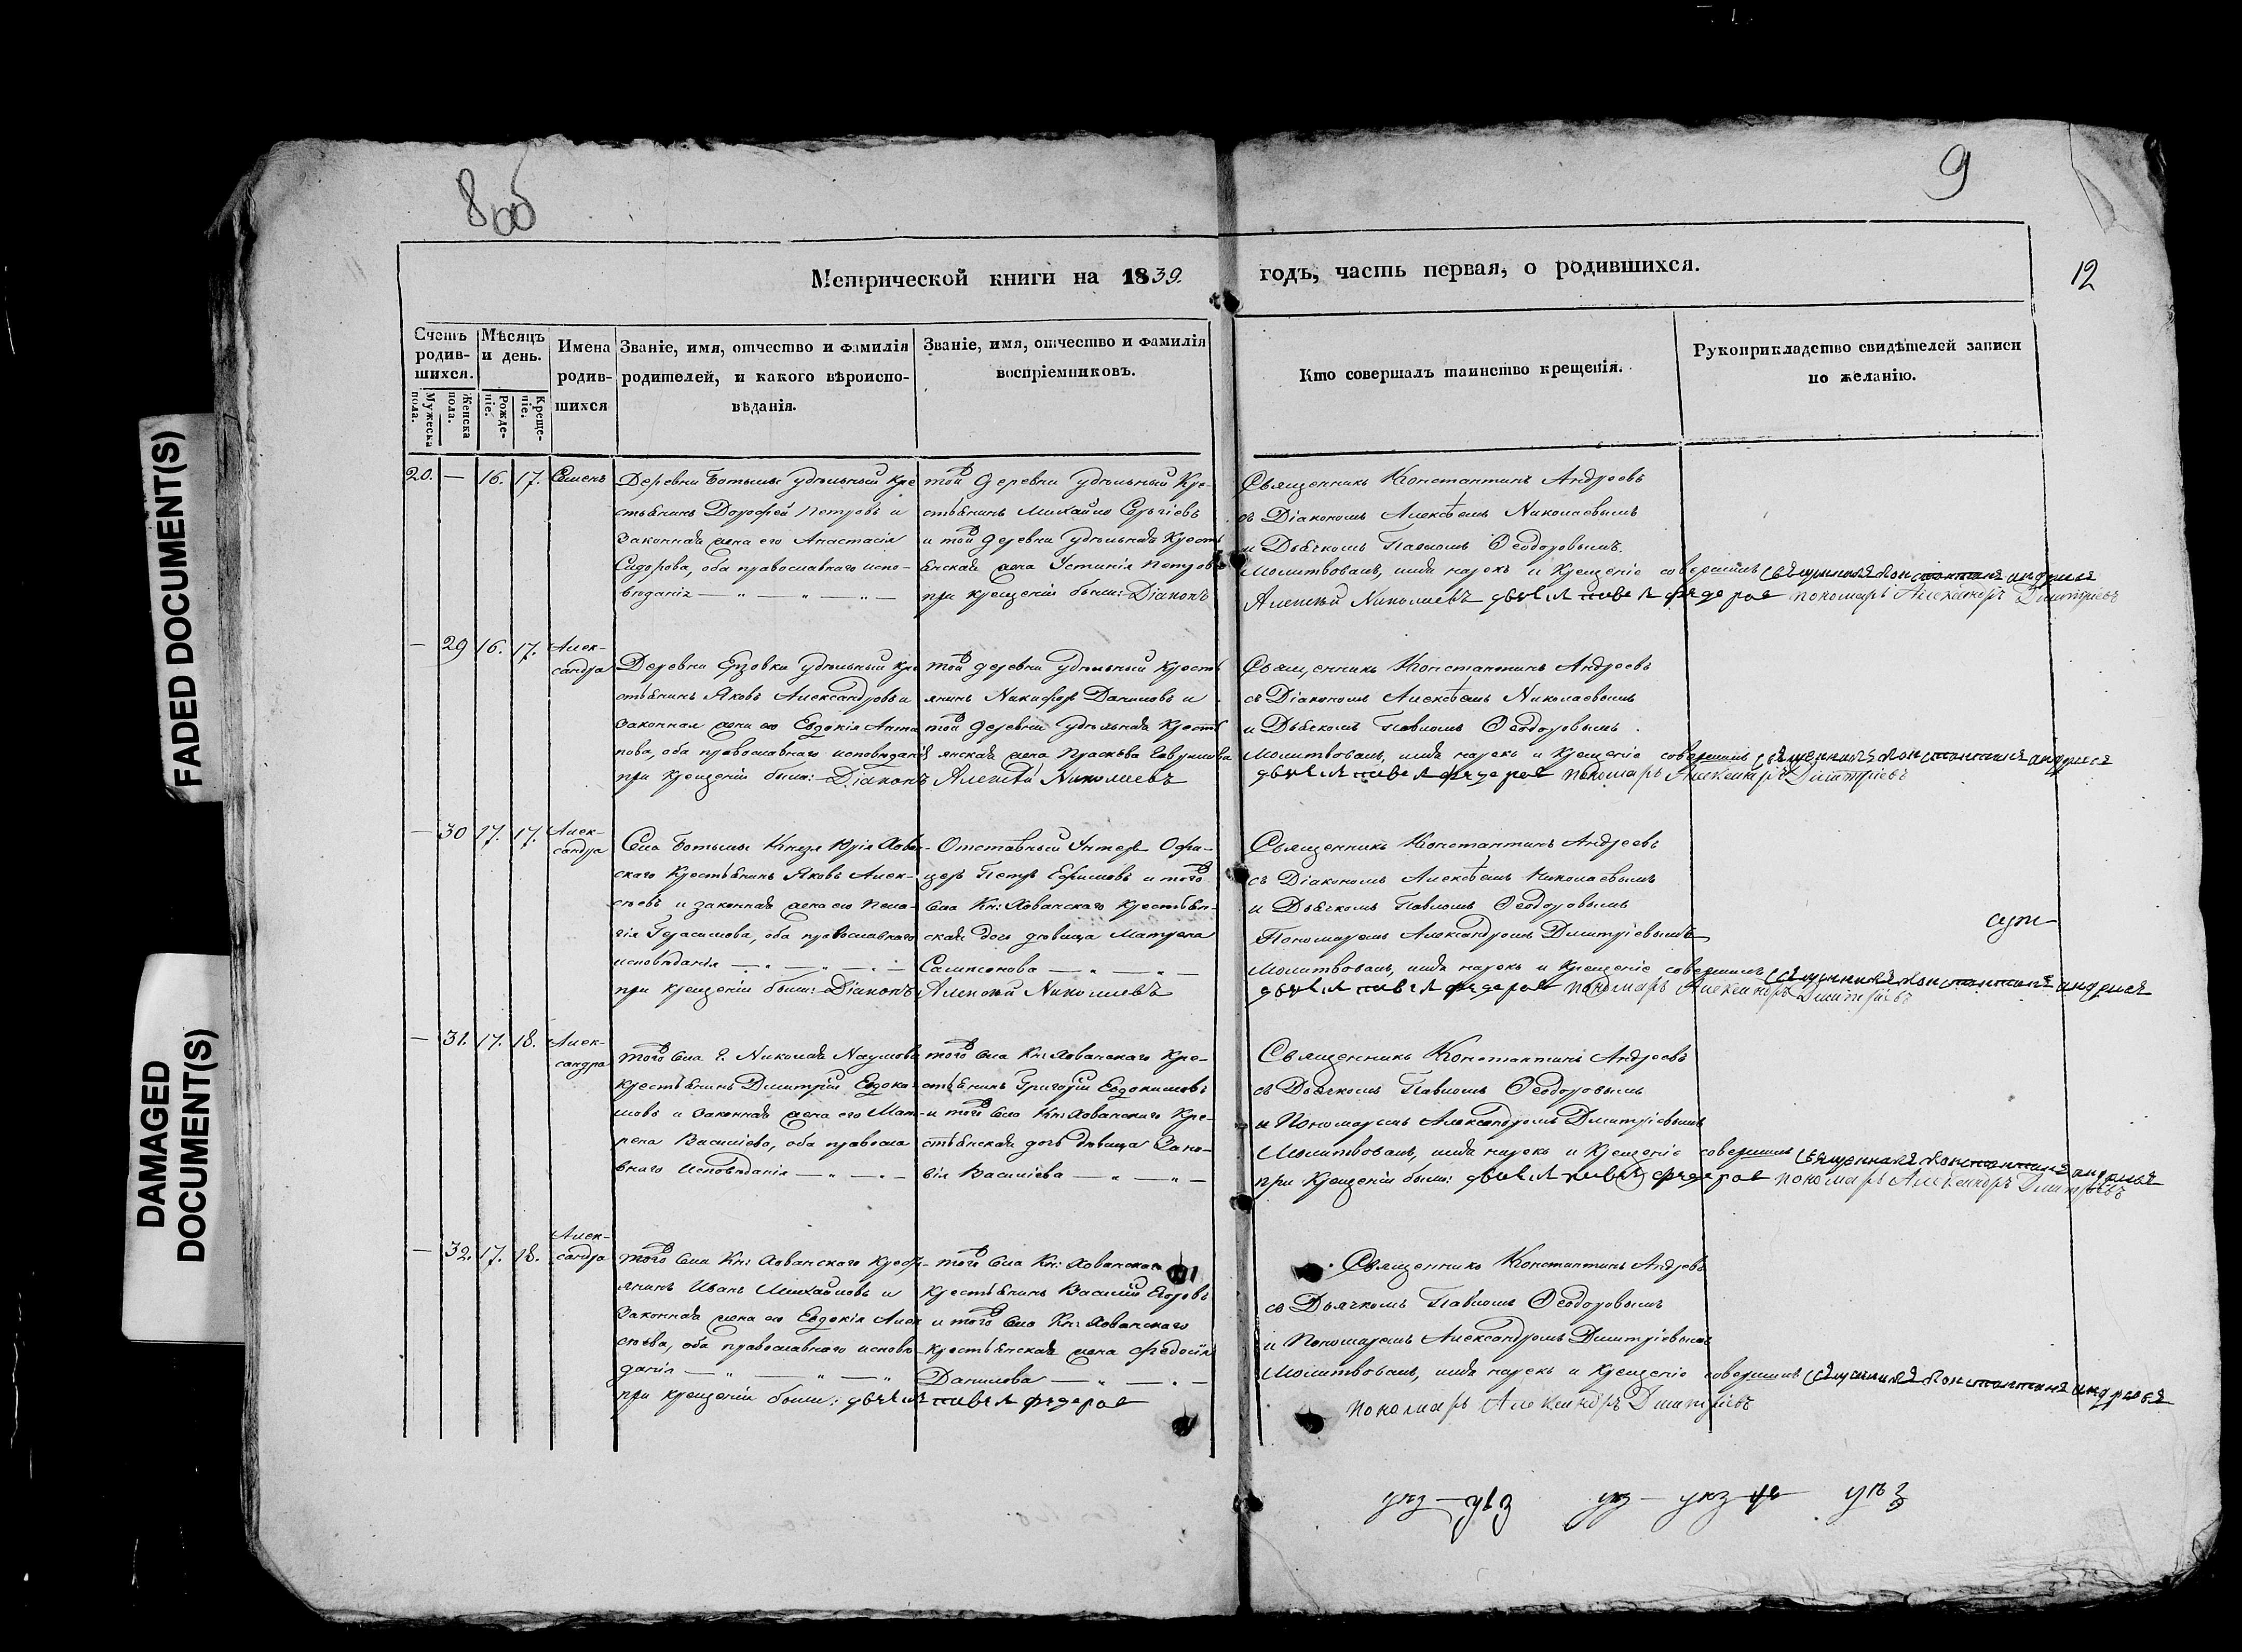 8 об
9
12
Метрической книги на 1839. годъ, часть первая, о родившихся.
Счетъ родив-шихся.
Мужеска пола.
Женска пола.
Мѣсяцъ и день.
Рожде-ніе.
Креще-ніе.
Имена родив-шихся
Званіе, имя, отчество и фамилія родителей, и какого вѣроиспо-вѣданія.
Званіе, имя, отчество и фамилія воспріемниковъ.
Кто совершалъ таинство крещенія.
Рукоприкладство свидѣтелей записи по желанію.
20. — 16. 17. Сименъ
Деревни Ботьмы удѣльный кре
стьянинъ Дорофей Петровъ и
законная жена его Анастасія
Сидорова, оба православнаго испо-
вѣданія
той деревни удѣльный Кре-
стьянинъ Михайло Сергіевъ
и той деревни удѣльная Кресть
янская жена Устинія Петров
при крещеніи были: Діаконъ
Священникъ Константинъ Андреевъ
съ Діакономъ Алексѣемъ Николаевымъ
и Дьячкомъ Павломъ Ѳеодоровымъ.
Молитвовалъ, имя нарекъ и Крещеніе совершилъ священникъ Константинъ Андреевъ
Алексѣй Николаевъ дьячекъ Павелъ Федоровъ пономарь Александръ Дмитріевъ
— 29 16. 17. Алек-
сандра
Деревни Ерзовки удѣльный кре
стьянинъ Яковъ Александровъ и
законная жена его Евдокія Анти
пова, оба православнаго исповѣданія
при крещеніи были: Діаконъ Алексѣй Николаевъ
той деревни удѣльный кресть
янинъ Никифоръ Даниловъ и
той деревни удѣльная Кресть
янская жена Прасковья Гаврилова
Священникъ Константинъ Андреевъ
съ Діакономъ Алексѣемъ Николаевымъ
и Дьячкомъ Павломъ Ѳеодоровымъ
Молитвовалъ, имя нарекъ и Крещеніе совершилъ священникъ Константинъ Андреевъ
дьячекъ Павелъ Федоровъ пономарь Александръ Дмитріевъ
— 30 17. 17. Алек-
сандра
Села Ботьмы Князя Юрія Хован-
скаго Крестьянинъ Яковъ Алек-
сѣевъ и законная жена его Пела-
гія Герасимова, оба православнаго
исповѣданія
при крещеніи были: Діаконъ Алексѣй Николаевъ
Отставный Унтеръ Офи-
церъ Петръ Ефимовъ и того
села Кн: Хованскаго Крестьян-
ская дочь дѣвица Матрена
Самсонова
Священникъ Константинъ Андреевъ
съ Діакономъ Алексѣемъ Николаевымъ
и Дьячкомъ Павломъ Ѳеодоровымъ
Пономаремъ Александромъ Дмитріевымъ
Молитвовалъ, имя нарекъ и Крещеніе совершилъ священникъ Константинъ Андреевъ
дьячекъ Павелъ Федоровъ пономарь Александръ Дмитріевъ
— 31. 17. 18. Алек-
сандра
того села г. Николая Наумова
крестьянинъ Дмитрій Евдоки-
мовъ и законная жена его Мат-
рена Васильева, оба правосла
внаго исповѣданія
того села Кн: Хованскаго Кре-
стьянинъ Григорій Евдокимовъ
и того села Кн: Хованскаго Кре-
стьянская дочь дѣвица Зино-
вія Васильева
Священникъ Константинъ Андреевъ
съ Дьячкомъ Павломъ Ѳеодоровымъ
и Пономаремъ Александромъ Дмитріевымъ
Молитвовалъ, имя нарекъ и Крещеніе совершилъ священникъ Константинъ Андреевъ
при Крещеніи были: дьячекъ Павелъ Федоровъ пономарь Александръ Дмитріевъ
— 32. 17. 18. Алек-
сандра
того села Кн: Хованскаго Крест-
янинъ Иванъ Михайловъ и
законная жена его Евдокія Алек
сѣева, оба православнаго исповѣ-
данія
при крещеніи были: дьячекъ Павелъ Федоровъ
того села Кн: Хованскаго
крестьянинъ Василій Егоровъ
и того села Кн: Хованскаго
крестьянская жена Федосія
Данилова
Священникъ Константинъ Андреевъ
съ Дьячкомъ Павломъ Ѳеодоровымъ
и Пономаремъ Александромъ Дмитріевымъ
Молитвовалъ, имя нарекъ и Крещеніе совершилъ священникъ Константинъ Андреевъ
пономарь Александръ Дмитріевъ
FADED DOCUMENT(S)
DAMAGED
DOCUMENT(S)